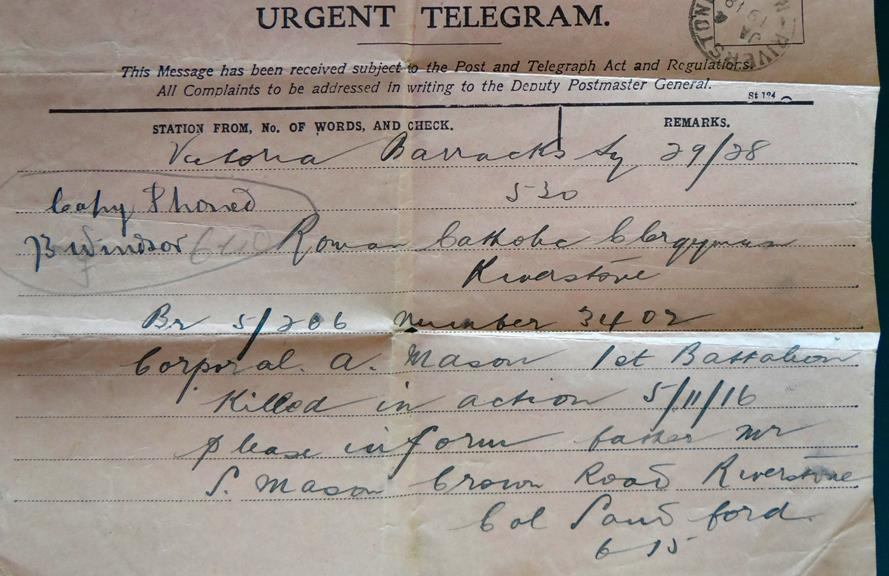 URGENT TELEGRAM.
RIVERSTON
JA
19 18
This Message has been received subject to the Post and Telegraph Act and Regulations.
All Complaints to be addressed in writing to the Deputy Postmaster General.
St 124
STATION FROM, No. OF WORDS, AND CHECK.
REMARKS.
Victoria Barracks Sy 29/28
530
Copy Phoned
Windsor
Roman Catholic Clergyman
Riverstone
Br 5/206 number 3402
Corporal. A. Mason 1st Battalion
Killed in action 5/11/16
please inform father Mr
S. Mason Crown Road Riverstone
Col Sandford.
6 15